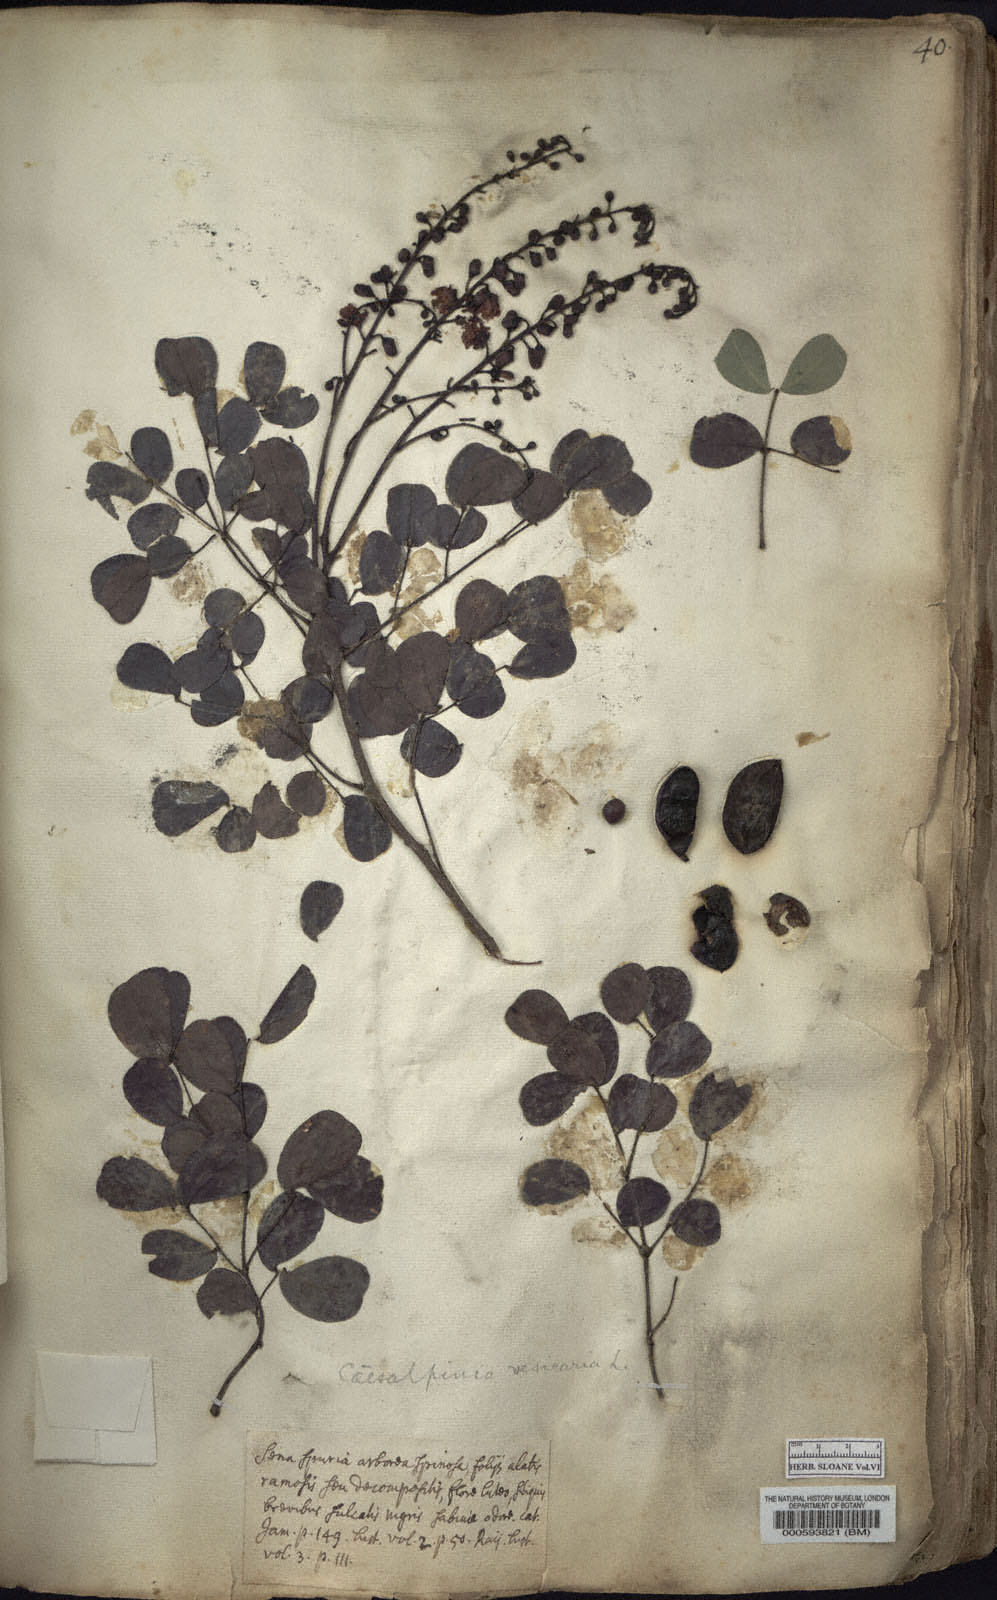 40.
Caesalpinia vesicaria L.
Sena spuria arborea spinosa foliis alatis
ramosis seu decompositis, flore luteo, siliquis
brevibus sulcatis nigris sabinæ odore. Cat.
Jam. p. 149. hist. vol. 2. p. 50. Raij. hist.
vol. 3. p. 111.
HERB. SLOANE Vol.VI
THE NATURAL HISTORY MUSEUM, LONDON
DEPARTMENT OF BOTANY
000593821 (BM)